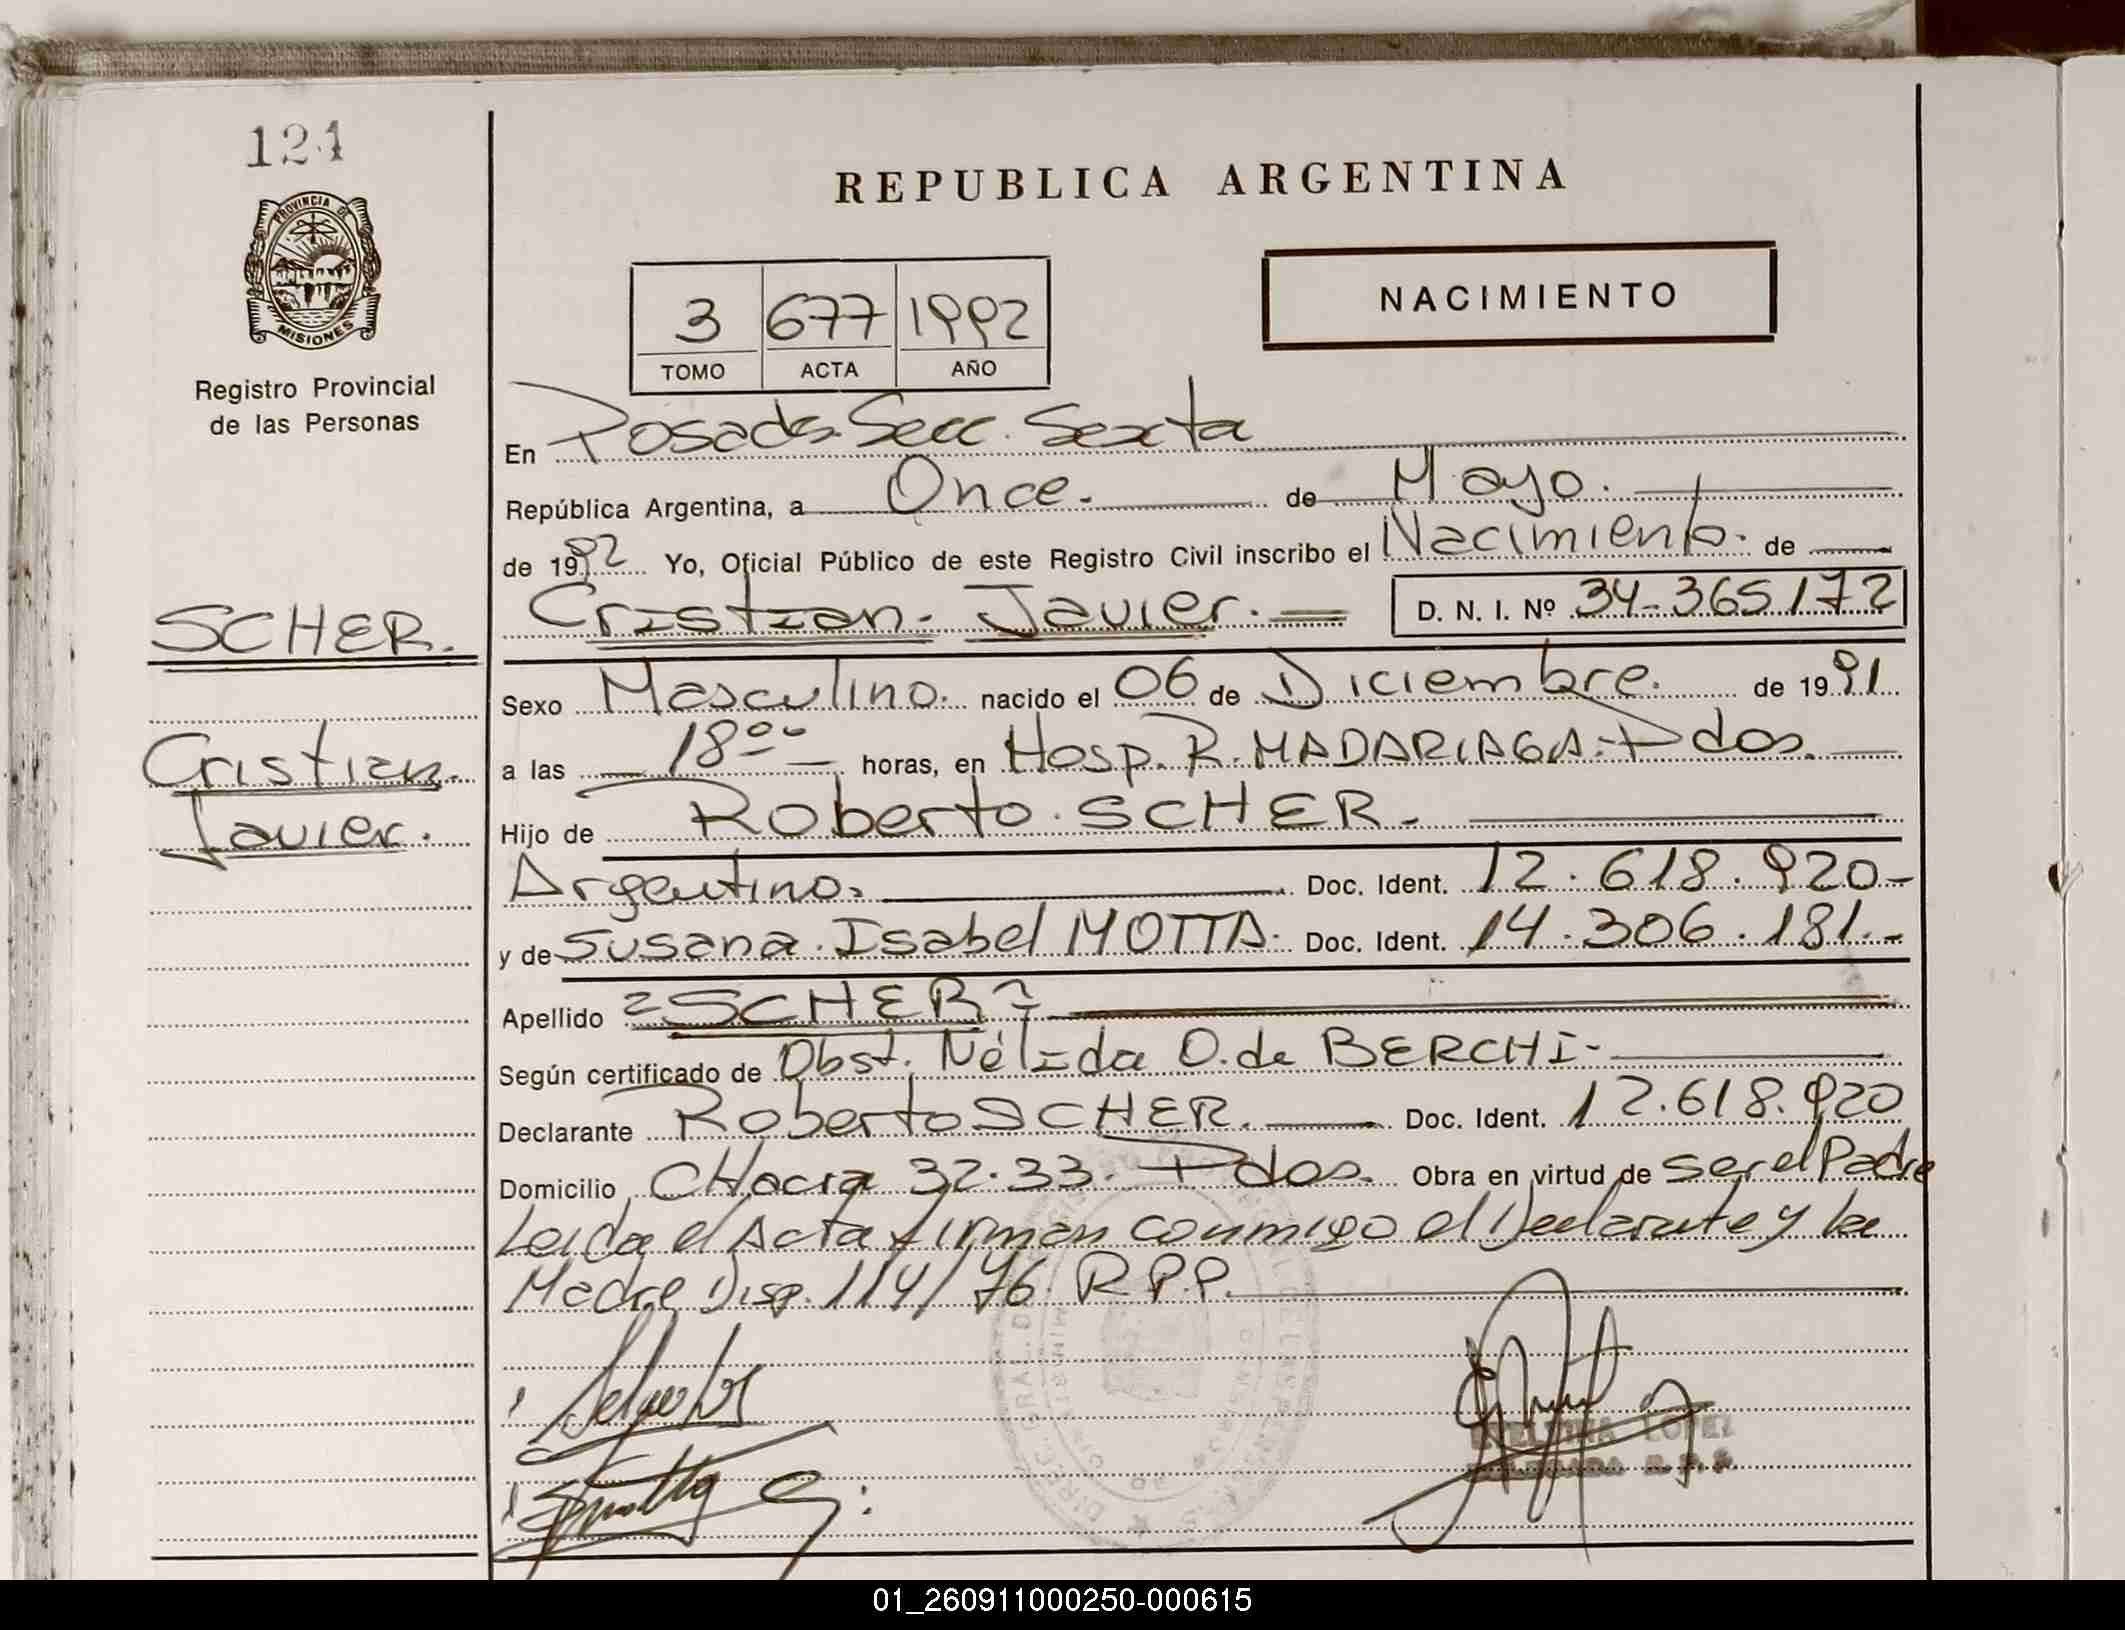 124
PROVINCIA DE
MISIONES
Registro Provincial
de las Personas
SCHER.
Cristian.
Javier.
REPUBLICA ARGENTINA
3 677 1992
TOMO ACTA AÑO
NACIMIENTO
En Posadas. Secc. Sexta
República Argentina, a Once. de Mayo.
de 1992 Yo, Oficial Público de este Registro Civil inscribo el Nacimiento. de
Cristian. Javier. D. N. I. Nº 34-365172
Sexo Masculino. nacido el 06 de Diciembre. de 1991
a las 18⁰⁰ horas, en Hosp. R. MADARIAGA. Pdos.
Hijo de Roberto. SCHER.
Argentino. Doc. Ident. 12.618.920-
y de Susana. Isabel MOTTA. Doc. Ident. 14.306.181.-
Apellido =SCHER=
Según certificado de Obst. Nélida O. de BERCHI-
Declarante Roberto SCHER. Doc. Ident. 12.618.920
Domicilio CHacra 32-33. Pdos. Obra en virtud de ser el Padre
Leida el Acta firman conmigo el Declarante y la
Madre Disp. 114/76. R.P.P.
LOPEZ
R.P.P.
01_260911000250-000615